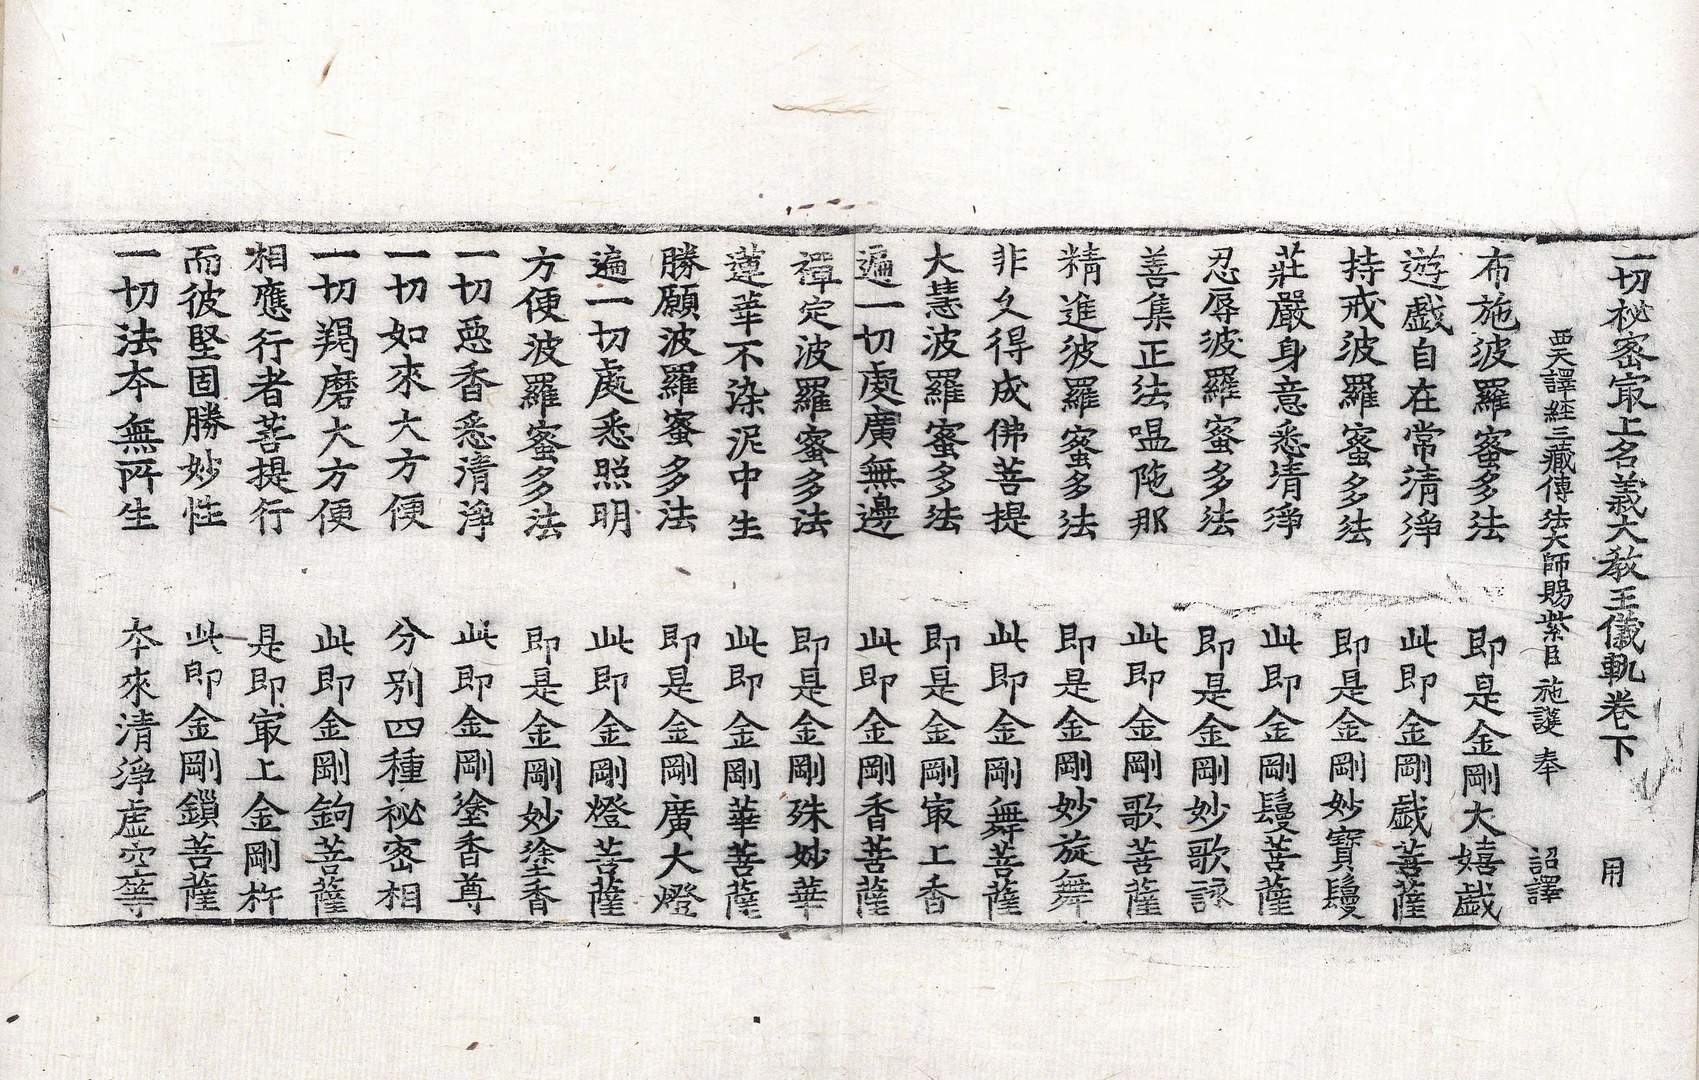 一切祕密㝡上名義大教王儀軌卷下　用
西天譯經三藏傳法大師賜紫臣施護奉　詔譯
布施波羅蜜多法　即是金剛大嬉戲
遊戲自在常清淨　此即金剛戲菩薩
持戒波羅蜜多法　即是金剛妙寶鬘
莊嚴身意悉清淨　此即金剛鬘菩薩
忍辱波羅蜜多法　即是金剛妙歌詠
善集正法嗢陁那　此即金剛歌菩薩
精進波羅蜜多法　即是金剛妙旋舞
非久得成佛菩提　此即金剛舞菩薩
大慧波羅蜜多法　即是金剛㝡上香
遍一切處廣無邊　此即金剛香菩薩
禪定波羅蜜多法　即是金剛殊妙華
蓮華不染泥中生　此即金剛華菩薩
勝願波羅蜜多法　即是金剛廣大燈
遍一切處悉照明　此即金剛燈菩薩
方便波羅蜜多法　即是金剛妙塗香
一切惡香悉清淨　此即金剛塗香尊
一切如來大方便　分別四種祕密相
一切羯磨大方便　此即金剛鉤菩薩
相應行者菩提行　是即㝡上金剛杵
而彼堅固勝妙性　此即金剛鎖菩薩
一切法夲無所生　夲來清淨虛空等